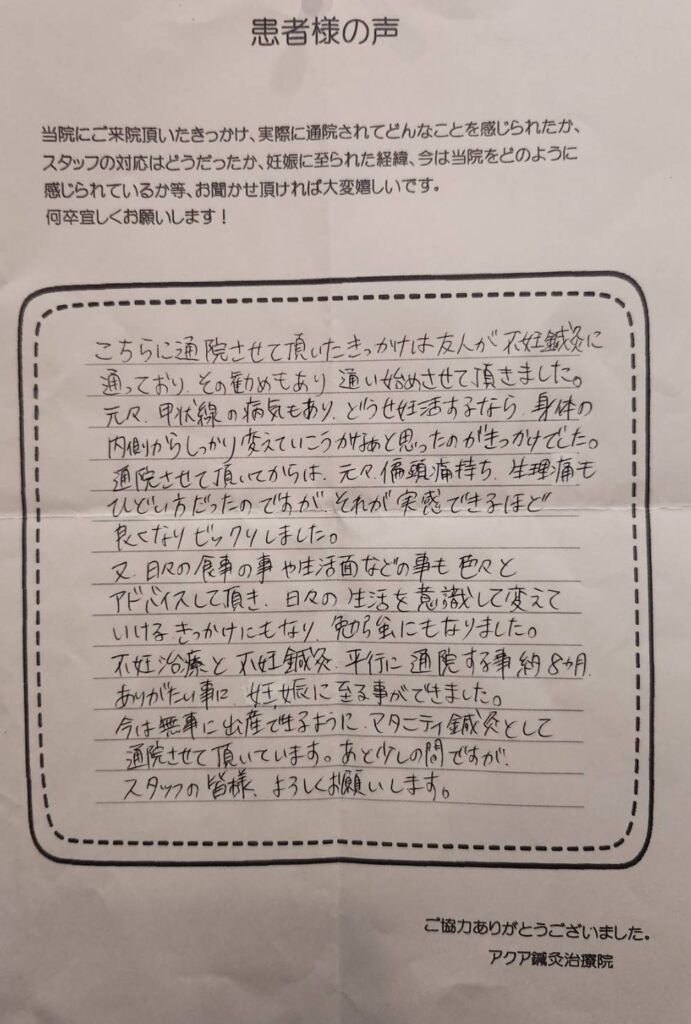 患者様の声
当院にご来院頂いたきっかけ、実際に通院されてどんなことを感じられたか、
スタッフの対応はどうだったか、妊娠に至られた経緯、今は当院をどのように
感じられているか等、お聞かせ頂ければ大変嬉しいです。
何卒宜しくお願いします！
こちらに通院させて頂いたきっかけは友人が不妊鍼灸に
通っており、その勧めもあり通い始めさせて頂きました。
元々、甲状線の病気もあり、どうせ妊活するなら、身体の
内側からしっかり変えていこうかなぁと思ったのがきっかけでした。
通院させて頂いてからは、元々偏頭痛持ち、生理痛も
ひどい方だったのですが、それが実感できるほど
良くなりビックリしました。
又、日々の食事の事や生活面などの事も色々と
アドバイスして頂き、日々の生活を意識して変えて
いけるきっかけにもなり、勉強にもなりました。
不妊治療と不妊鍼灸、平行に通院する事約8ヵ月、
ありがたい事に、妊娠に至る事ができました。
今は無事に出産できるように、マタニティ鍼灸として
通院させて頂いています。あと少しの間ですが、
スタッフの皆様、よろしくお願いします。
ご協力ありがとうございました。
アクア鍼灸治療院